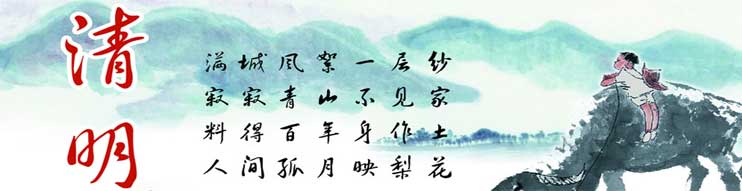 清明
满城风絮一层纱
寂寂青山不见家
料得百年身作土
人间孤月映梨花